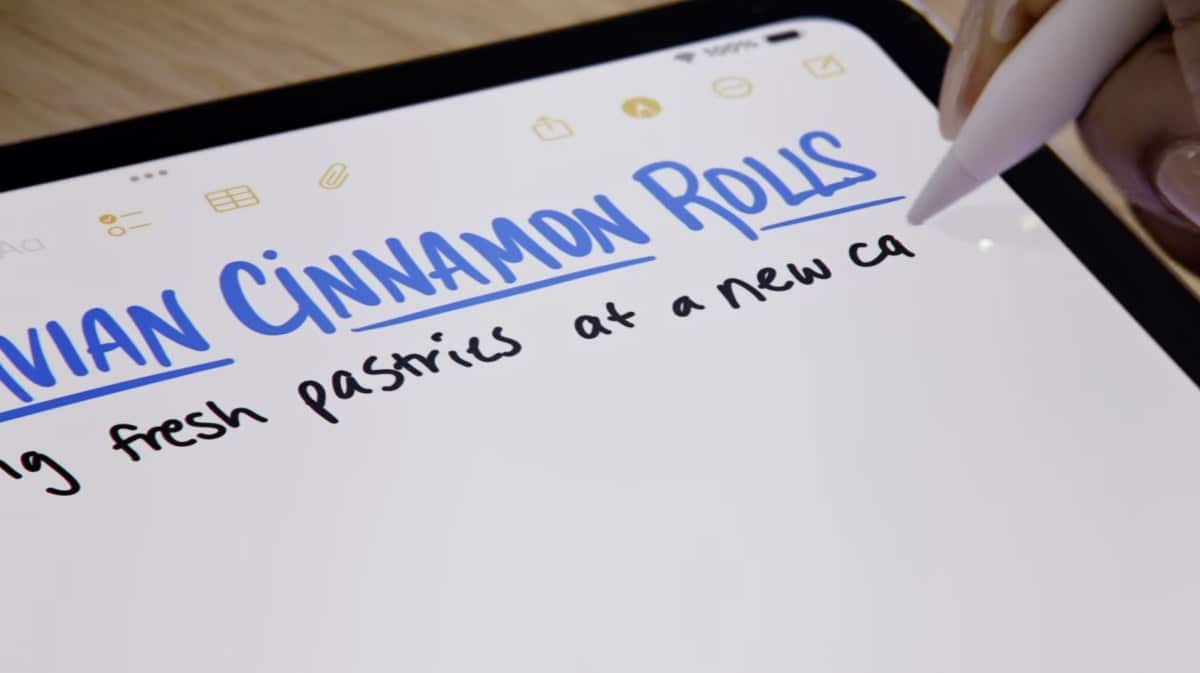 100%
Aa
VIAN CiNNAMON ROLLS
ig fresh pastries at a new ca